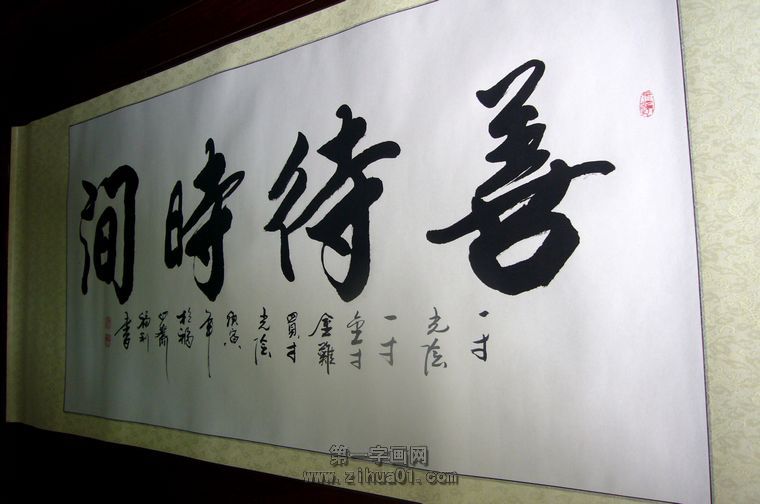 善待時間
一寸
光陰
一寸
金寸
金難
買寸
光陰
年
書
第一字画网
www.zihua01.com